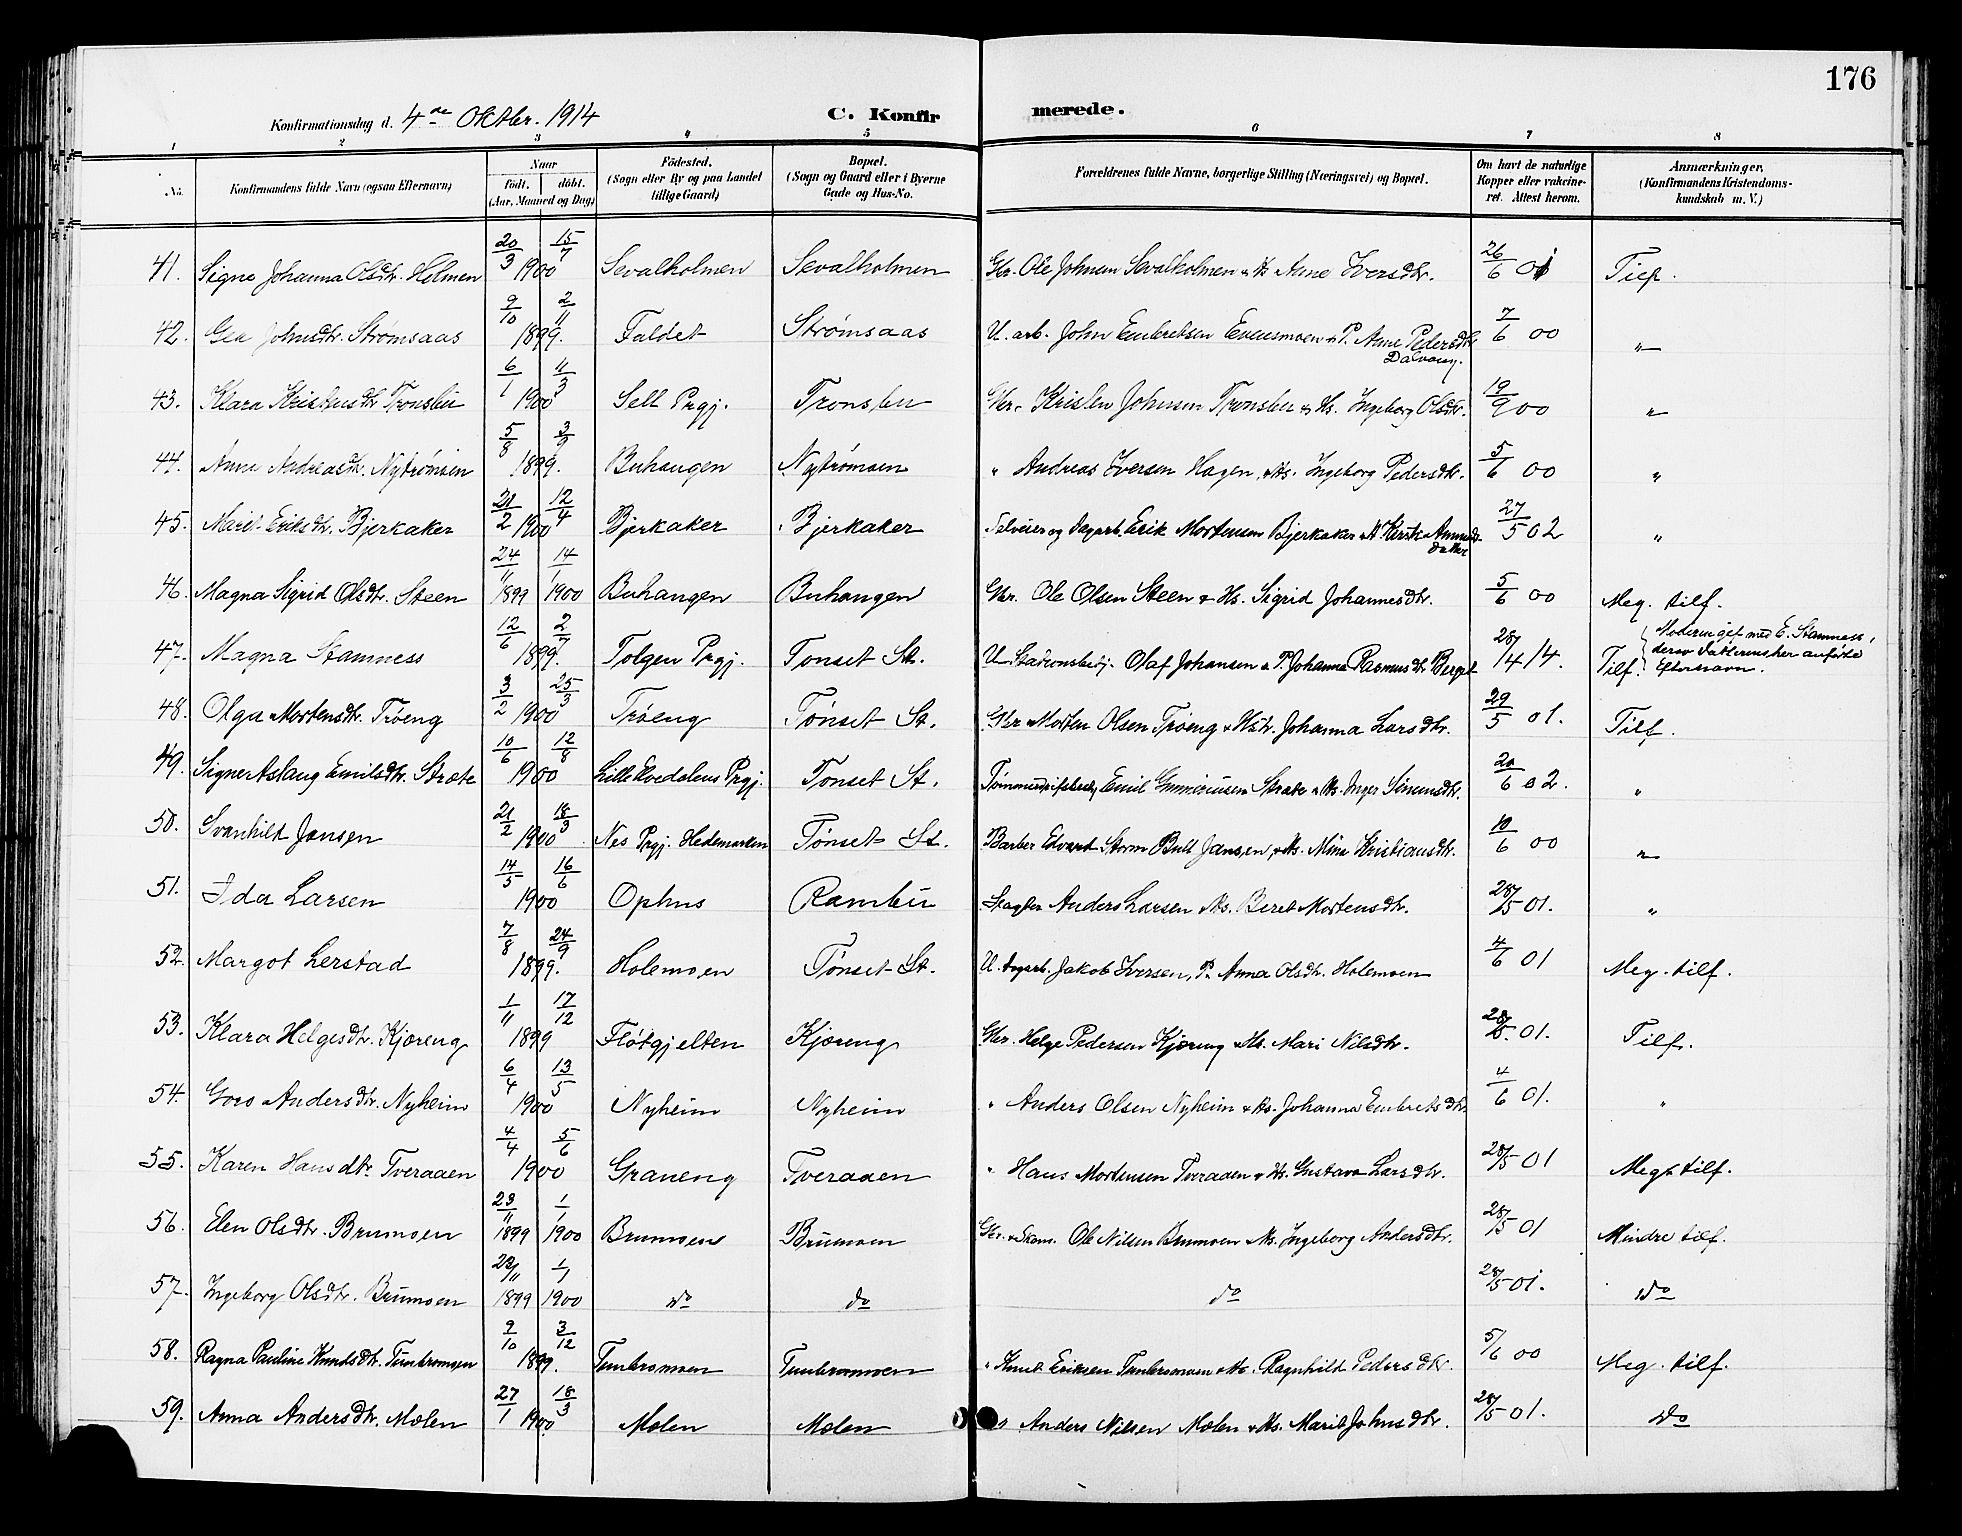 176
Konfirmationsdag d. 4de Oktbr. 1914 C. Konfirmerede.
1 2 3 4 5 6 7 8
No. Konfirmandens fulde Navn (ogsaa Efternavn) Naar födt. döbt. (Aar, Maaned og Dag) Födested. (Sogn eller By og paa Landet tillige Gaard) Bopæl. (Sogn og Gaard eller i Byerne Gade og Hus-No. Forældrenes fulde Navne, borgerlige Stilling (Næringsvei) og Bopæl. Om havt de naturlige Kopper eller vakcineret. Attest herom. Anmærkninger, (Konfirmandens Kristendomskundskab m. V.)
41. Signe Johanna Olsdtr. Holmen 20/3 15/7 1900 Sevalholmen Sevalholmen Gbr. Ole Johnsen Sevalholmen & Hs. Anne Iversdtr. 26/6 01 Tilf.
42. Gea Johnsdtr. Strømsaas 9/10 2/11 1899. Faldet Strømsaas U. arb. John Embretsen Evensmoen & P. Anne Pedersdtr Dalvang. 7/6 00 "
43. Klara Kristensdtr Tronsbu 6/1 11/3 1900 Sell Prgj. Tronsbu Gbr. Kristen Johnsen Tronsbu & Hs. Ingeborg Olsdtr. 19/9 00 "
44. Anne Andreasdtr. Nytrømoen 5/8 3/9 1899. Buhaugen Nytrømoen " Andreas Iversen Hagen, & Hs. Ingeborg Pedersdtr. 5/6 00 "
45. Marit Eriksdtr. Bjerkaker 21/2 12/4 1900 Bjerkaker Bjerkaker Selveier og dagarb. Erik Mortensen Bjerkaker & H. Kersti Amunds datter 27/5 02 "
46. Magna Sigrid Olsdtr. Steen 24/11 1899 14/1 1900 Buhaugen Buhaugen Gbr. Ole Olsen Steen & Hs. Sigrid Johannesdtr. 5/6 00 Meg. tilf.
47. Magna Stamness 12/6 2/7 1899. Tolgen Prgj. Tonset St. U. Stationsbetj. Olaf Johansen & P. Johanna Rasmusdtr Berget 28/4 14. Tilf. Moderen gift med E. Stamness, derav Datterens her anførte Efternavn.
48. Olga Mortensdtr. Trøeng 3/2 25/3 1900 Trøeng Tønset St. Gbr Morten Olsen Trøeng & Hstr. Johanna Larsdtr. 29/5 01. Tilf.
49. Signe Aslaug Emilsdtr. Stræte 10/6 12/8 1900 Lille Elvedalens Prgj. Tønset St. Emil Gunneriusen Stræte & Hs. Inger Simensdtr. 20/6 02. "
50. Svanhild Jansen 21/2 18/3 1900 Nes Prgj. Hedemarken Tønset St. Barber Edvard Storm Bull Jansen, & Hs. Mina Kristiansdtr. 10/6 00 "
51. Ida Larsen 14/5 16/6 1900 Ophus Rambu Slagter Anders Larsen & Hs. Beret Mortensdtr. 28/5 01. "
52. Margot Lerstad 7/8 24/9 1899. Holemoen Tønset St. U. dagarb. Jakob Iversen, P. Anna Olsdtr. Holemoen 4/6 01 Meg. tilf.
53. Klara Helgesdtr. Kjøreng 1/11 17/12 1899 Fløtgjelten Kjøreng Gbr. Helge Pedersen Kjøreng & Hs. Mari Nilsdtr. 28/5. 01. Tilf.
54. Goro Andersdtr. Nyheim 6/4 13/5 1900 Nyheim Nyheim " Anders Olsen Nyheim & Hs. Johanna Embretsdtr 4/6 01. "
55. Karen Hansdtr Tveraaen 4/4 5/6 1900 Graneng Tveraaen " Hans Mortensen Tveraaen & Hs. Gustava Larsdtr. 28/5 01 Meget tilf.
56. Elen Olsdtr. Brumoen 23/11 1899 1/1 1900 Brumoen Brumoen Gbr. & Skom. Ole Nilsen Brumoen & Hs. Ingeborg Andersdtr. 28/5 01 Mindre tilf.
57. Ingeborg Olsdtr. Brumoen 23/11 1899 1/1 1900 do do do 28/5 01. do
58. Ragna Pauline Knudsdtr. Tunbromoen 9/10 3/12 1899. Tunbromoen Tunbromoen " Knut Eriksen Tunbromoen & Hs. Ragnhild Pedersdtr. 5/6 00 Meg. tilf.
59. Anna Andersdtr. Molen 27/1 18/3 1900 Molen Molen " Anders Nilsen Molen & Hs. Marit Johnsdtr. 28/5 01. do